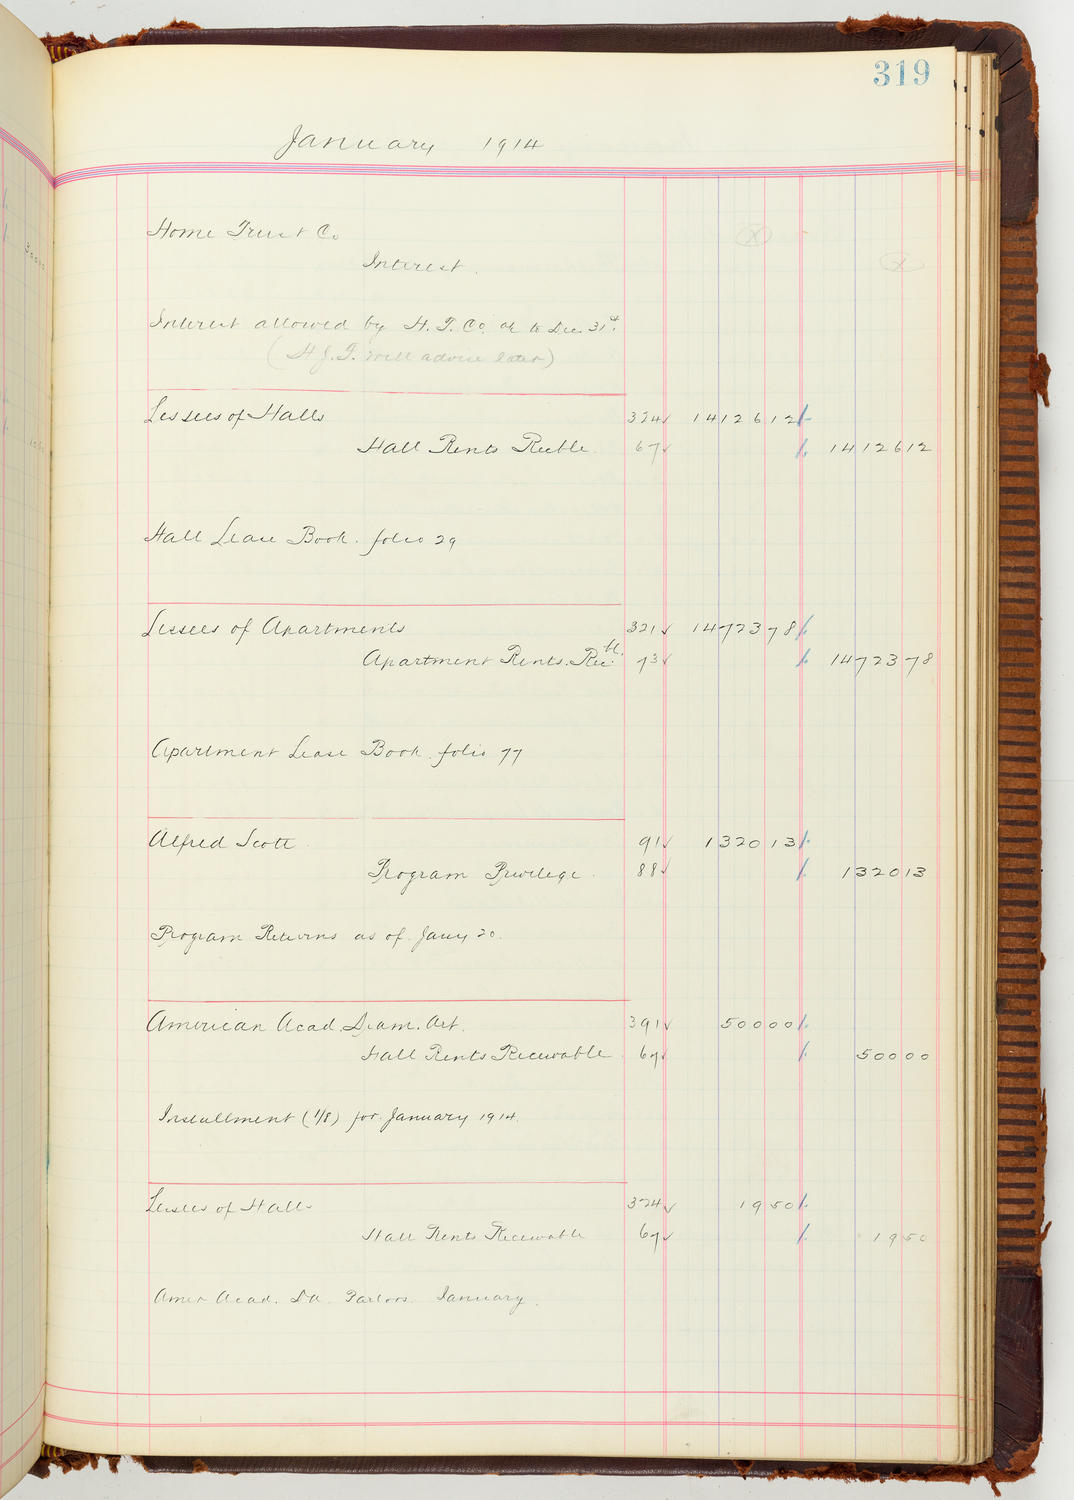 319
January 1914
Home Trust Co
Interest.
Interest allowed by H. T. Co. to Dec. 31st.
(H. J. T. will advise later)
Lessees of Halls 324✓ 14126 12
Hall Rents Recble. 67✓ 14126 12
Hall Lease Book. folio 29
Lessees of Apartments 321✓ 14723 78
Apartment Rents. Recbl. 73✓ 14723 78
Apartment Lease Book. folio 77
Alfred Scott 91✓ 1320 13
Program Privilege. 88✓ 1320 13
Program Returns as of Jany 20.
American Acad. Dram. Art. 391✓ 500 00
Hall Rents Receivable. 67✓ 500 00
Installment (1/8) for January 1914.
Lessees of Halls 324✓ 19 50
Hall Rents Receivable 67✓ 19 50
Amer Acad. DA. Parlors. January.